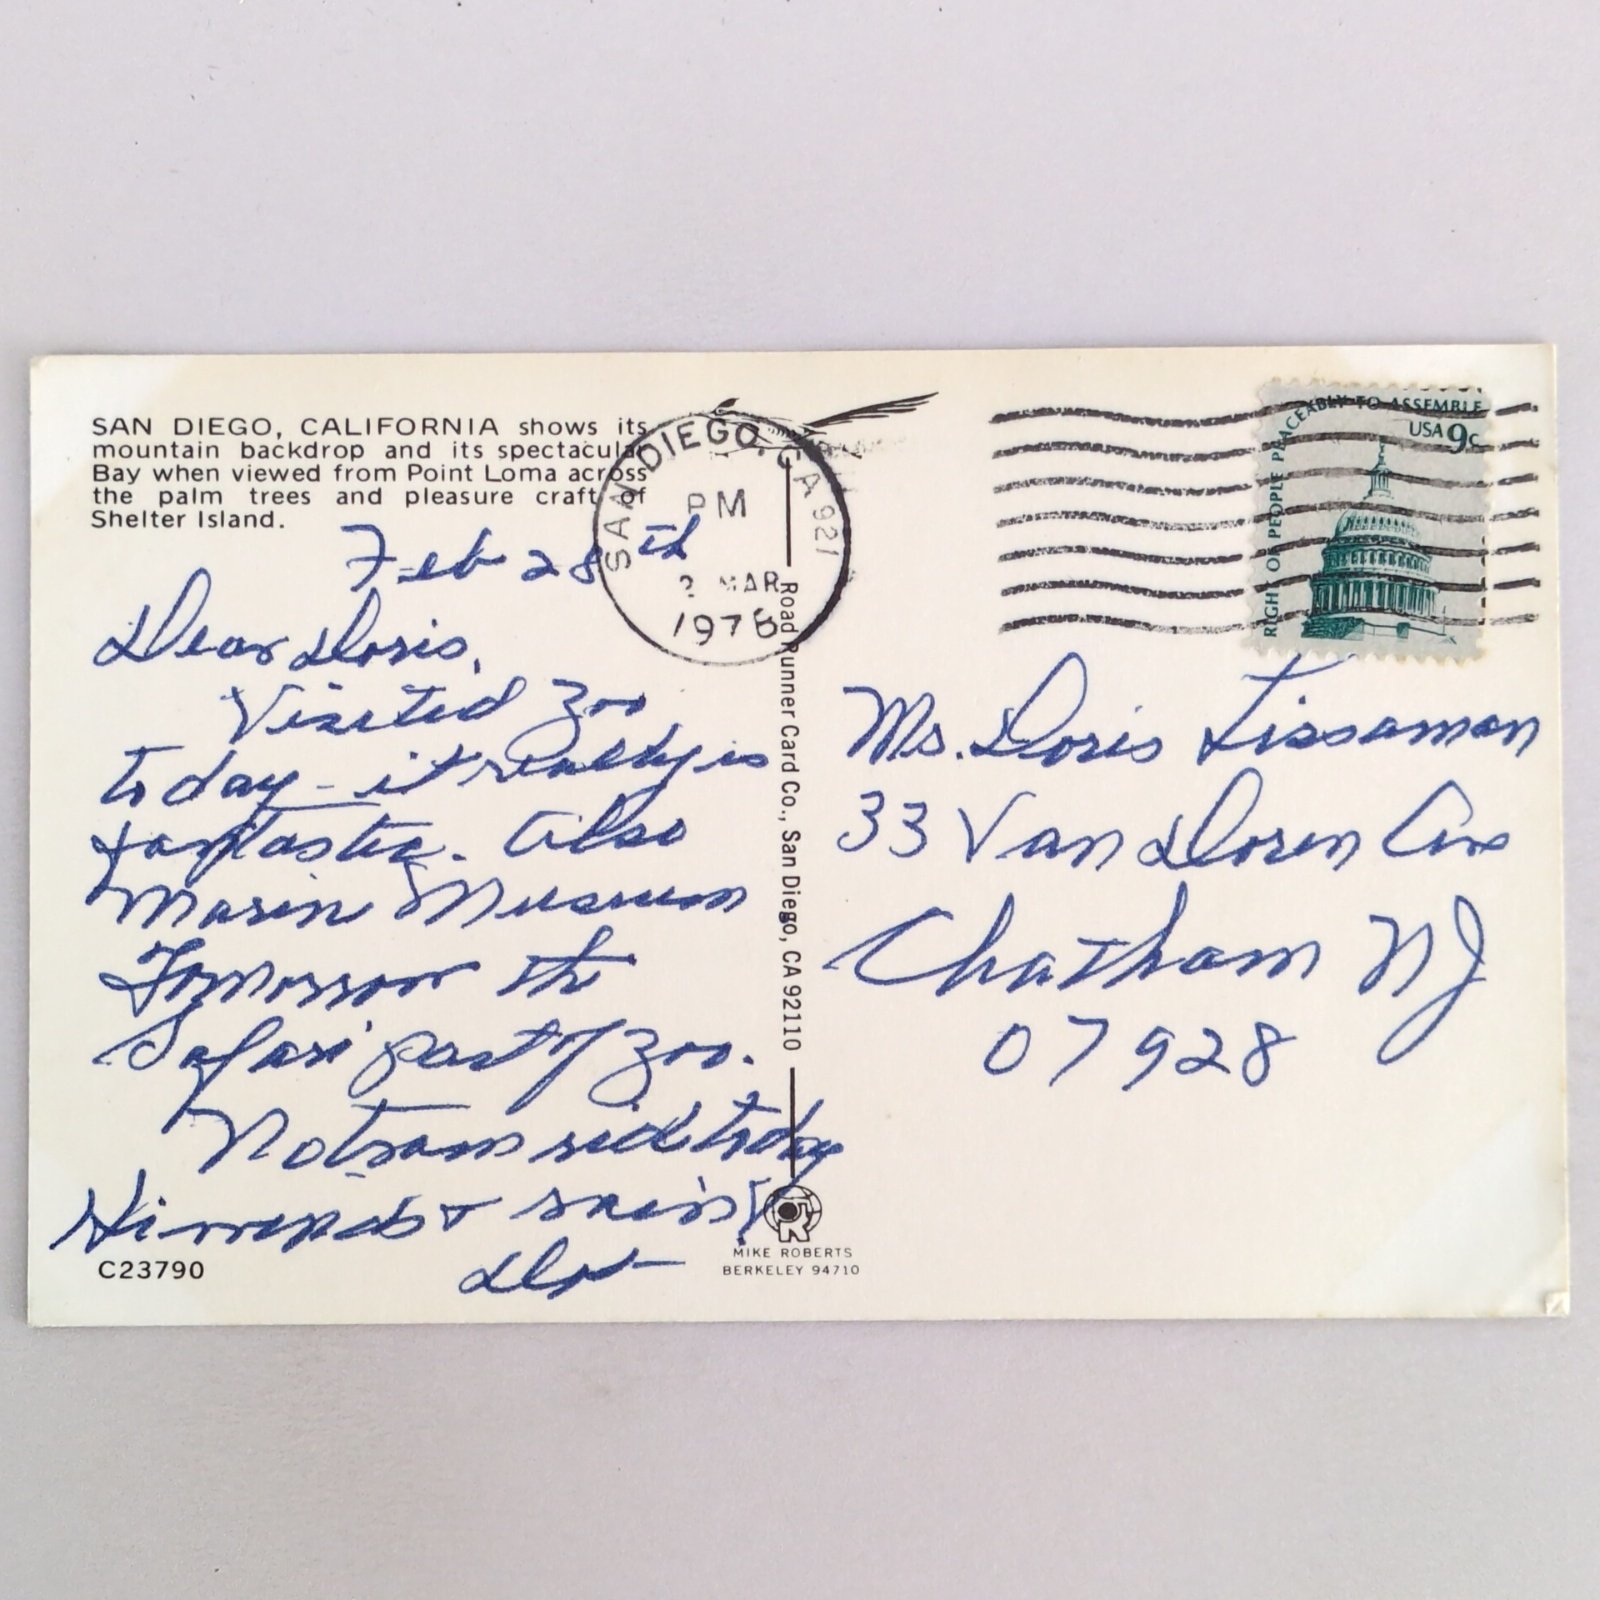 SAN DIEGO, CALIFORNIA shows its
mountain backdrop and its spectacular
Bay when viewed from Point Loma across
the palm trees and pleasure craft of
Shelter Island.
Feb 28th
Dear Doris,
Visited Zoo
today - it really is
fantastic. Also
Marin Museum
Tomorrow the
Safari part of Zoo.
No tram ride today
Hi winds &
Dot
C23790
SAN DIEGO, CA 921
PM
MAR
1976
Road Runner Card Co., San Diego, CA 92110
MIKE ROBERTS
BERKELEY 94710
RIGHT OF PEOPLE PEACEABLY TO ASSEMBLE
USA 9c
Ms. Doris Lissaman
33 Van Doren Ave
Chatham NJ
07928